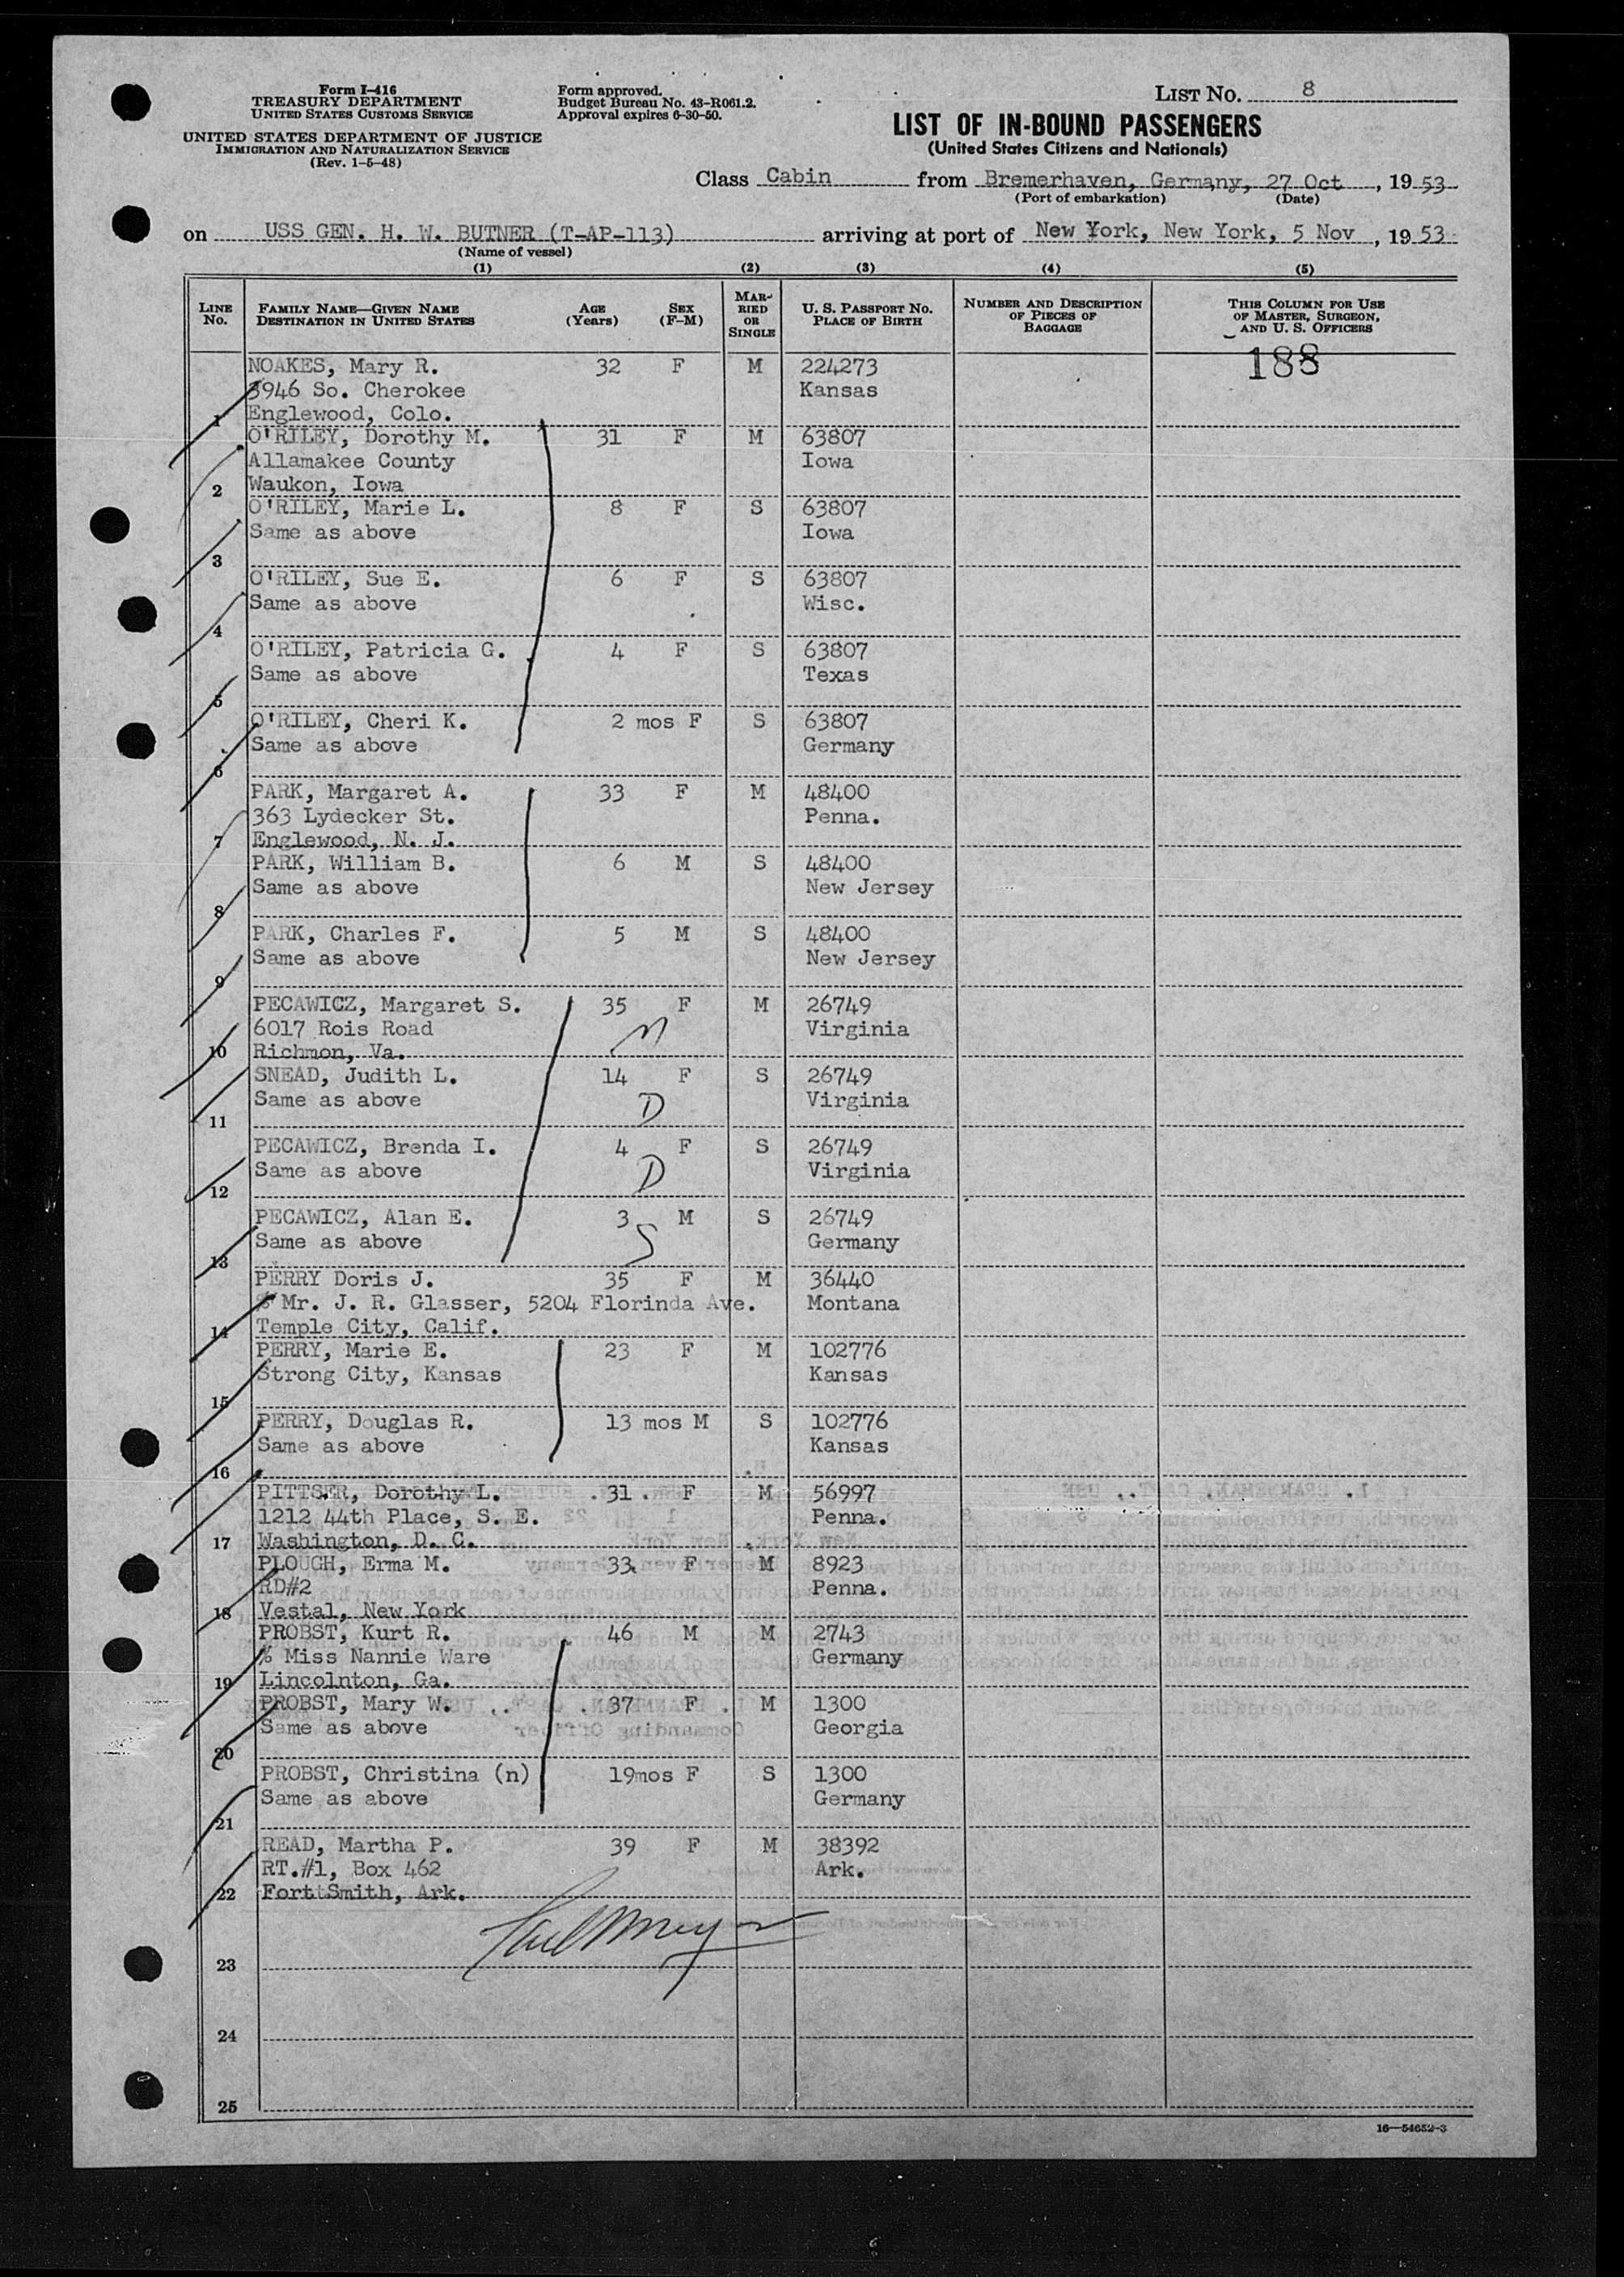 Form I-416
TREASURY DEPARTMENT
UNITED STATES CUSTOMS SERVICE
UNITED STATES DEPARTMENT OF JUSTICE
IMMIGRATION AND NATURALIZATION SERVICE
(Rev. 1-5-48)
Form approved.
Budget Bureau No. 43-R061.2.
Approval expires 6-30-50.
LIST NO. 8
LIST OF IN-BOUND PASSENGERS
(United States Citizens and Nationals)
Class Cabin from Bremerhaven, Germany, 27 Oct, 19 53
(Port of embarkation) (Date)
on USS GEN. H. W. BUTNER (T-AP-113) arriving at port of New York, New York, 5 Nov, 19 53
(Name of vessel)
(1) (2) (3) (4) (5)
LINE NO. FAMILY NAME—GIVEN NAME DESTINATION IN UNITED STATES AGE (Years) SEX (F-M) MARRIED OR SINGLE U. S. PASSPORT NO. PLACE OF BIRTH NUMBER AND DESCRIPTION OF PIECES OF BAGGAGE THIS COLUMN FOR USE OF MASTER, SURGEON, AND U. S. OFFICERS
188
NOAKES, Mary R. 32 F M 224273
3946 So. Cherokee Kansas
1 Englewood, Colo.
O'RILEY, Dorothy M. 31 F M 63807
Allamakee County Iowa
2 Waukon, Iowa
O'RILEY, Marie L. 8 F S 63807
Same as above Iowa
3
O'RILEY, Sue E. 6 F S 63807
Same as above Wisc.
4
O'RILEY, Patricia G. 4 F S 63807
Same as above Texas
5
O'RILEY, Cheri K. 2 mos F S 63807
Same as above Germany
6
PARK, Margaret A. 33 F M 48400
363 Lydecker St. Penna.
7 Englewood, N. J.
PARK, William B. 6 M S 48400
Same as above New Jersey
8
PARK, Charles F. 5 M S 48400
Same as above New Jersey
9
PECAWICZ, Margaret S. 35 F M 26749
6017 Rois Road M Virginia
10 Richmon, Va.
SNEAD, Judith L. 14 F S 26749
Same as above D Virginia
11
PECAWICZ, Brenda I. 4 F S 26749
Same as above D Virginia
12
PECAWICZ, Alan E. 3 M S 26749
Same as above S Germany
13
PERRY Doris J. 35 F M 36440
% Mr. J. R. Glasser, 5204 Florinda Ave. Montana
14 Temple City, Calif.
PERRY, Marie E. 23 F M 102776
Strong City, Kansas Kansas
15
PERRY, Douglas R. 13 mos M S 102776
Same as above Kansas
16
PITTSER, Dorothy L. 31 F M 56997
1212 44th Place, S. E. Penna.
17 Washington, D. C.
PLOUGH, Erma M. 33 F M 8923
RD#2 Penna.
18 Vestal, New York
PROBST, Kurt R. 46 M M 2743
% Miss Nannie Ware Germany
19 Lincolnton, Ga.
PROBST, Mary W. 37 F M 1300
Same as above Georgia
20
PROBST, Christina (n) 19mos F S 1300
Same as above Germany
21
READ, Martha P. 39 F M 38392
RT.#1, Box 462 Ark.
22 Fort Smith, Ark.
23
24
25
16—54652-3